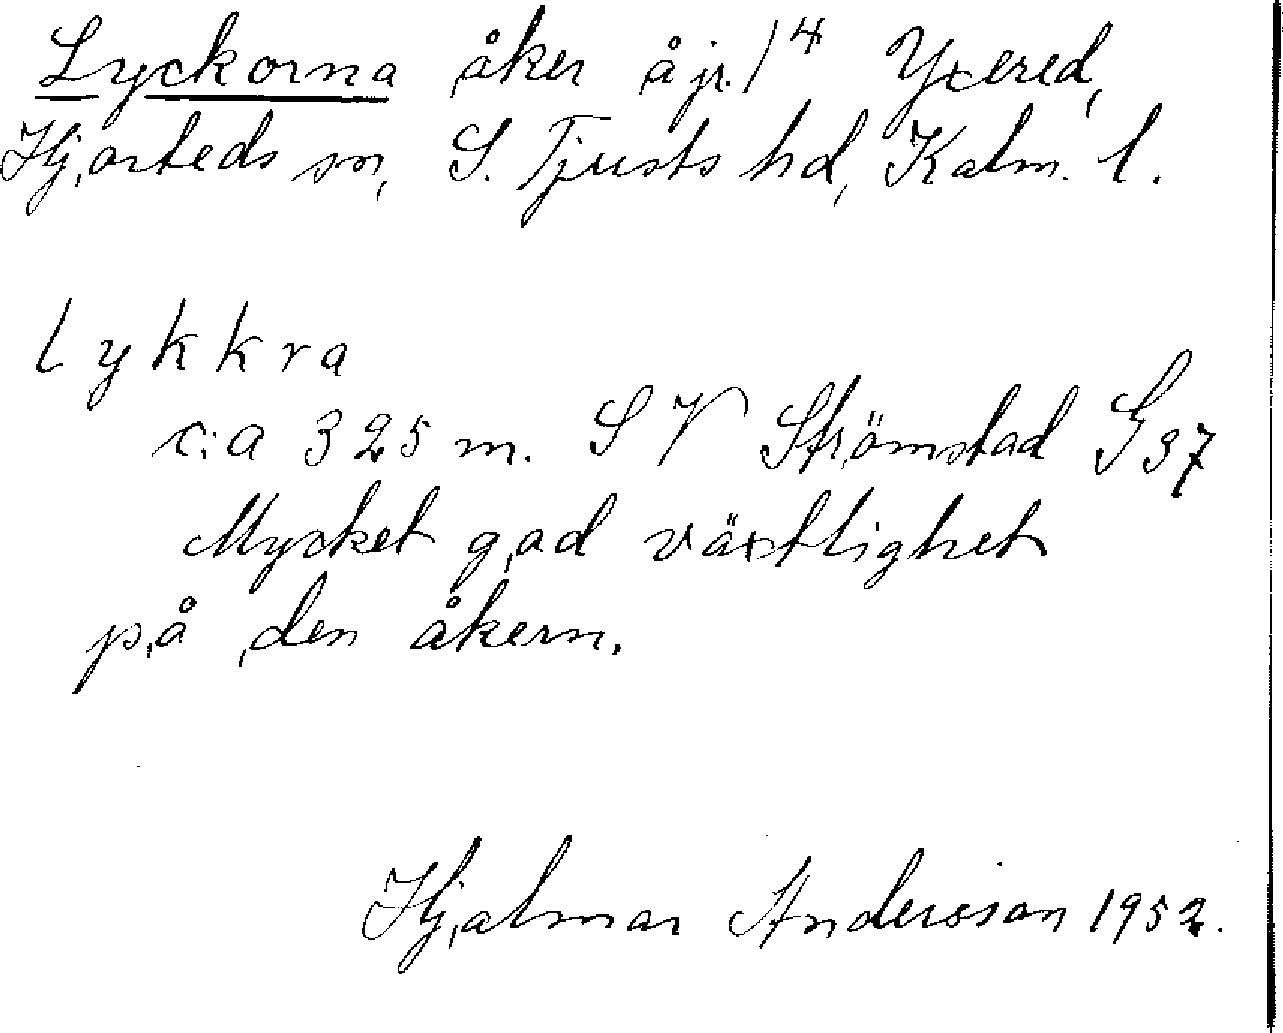 Lyckorna åker å jr. 1⁴ Yxered,
Hjorteds sn, S. Tjusts hd, Kalm. l.
lykkra
c:a 325 m. SV Strömstad G37
Mycket god växtlighet
på den åkern.
Hjalmar Andersson 1952.